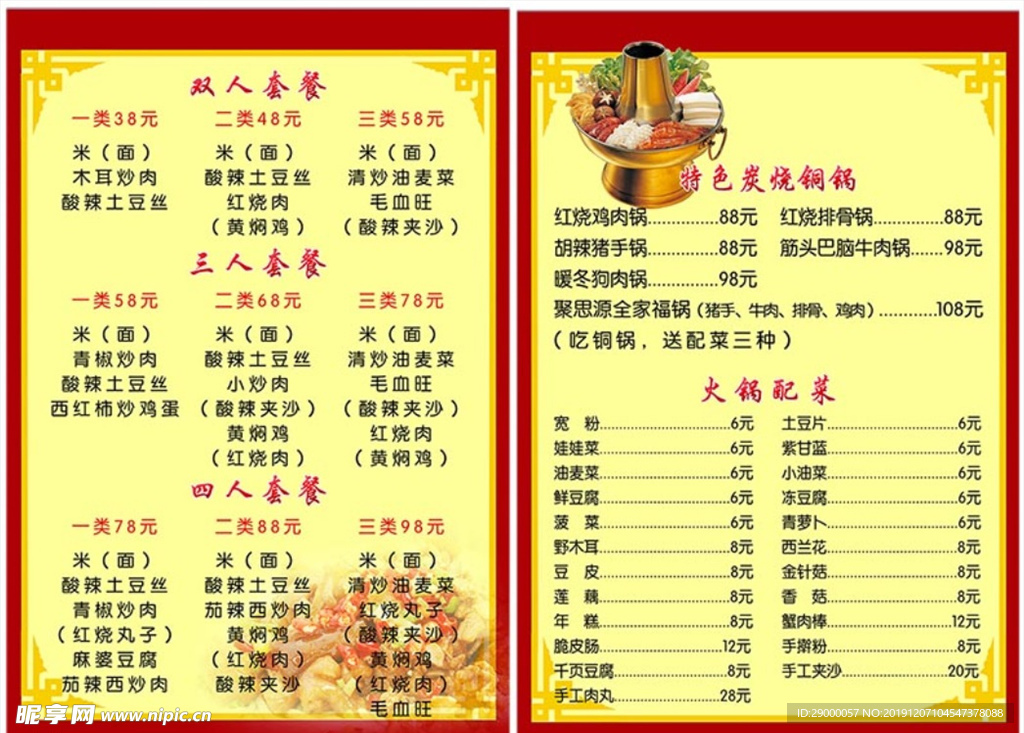 双人套餐
一类38元 二类48元 三类58元
米（面） 米（面） 米（面）
木耳炒肉 酸辣土豆丝 清炒油麦菜
酸辣土豆丝 红烧肉 毛血旺
（黄焖鸡） （酸辣夹沙）
三人套餐
一类58元 二类68元 三类78元
米（面） 米（面） 米（面）
青椒炒肉 酸辣土豆丝 清炒油麦菜
酸辣土豆丝 小炒肉 毛血旺
西红柿炒鸡蛋 （酸辣夹沙） （酸辣夹沙）
黄焖鸡 红烧肉
（红烧肉） （黄焖鸡）
四人套餐
一类78元 二类88元 三类98元
米（面） 米（面） 米（面）
酸辣土豆丝 酸辣土豆丝 清炒油麦菜
青椒炒肉 茄辣西炒肉 红烧丸子
（红烧丸子） 黄焖鸡 （酸辣夹沙）
麻婆豆腐 （红烧肉） 黄焖鸡
茄辣西炒肉 酸辣夹沙 （红烧肉）
毛血旺
特色炭烧铜锅
红烧鸡肉锅..............88元 红烧排骨锅..............88元
胡辣猪手锅..............88元 筋头巴脑牛肉锅.......98元
暖冬狗肉锅..............98元
聚思源全家福锅（猪手、牛肉、排骨、鸡肉）............108元
（吃铜锅，送配菜三种）
火锅配菜
宽 粉................................6元 土豆片................................6元
娃娃菜................................6元 紫甘蓝................................6元
油麦菜................................6元 小油菜................................6元
鲜豆腐................................6元 冻豆腐................................6元
菠 菜................................6元 青萝卜................................6元
野木耳................................8元 西兰花................................8元
豆 皮................................8元 金针菇................................8元
莲 藕................................8元 香 菇................................8元
年 糕................................8元 蟹肉棒..............................12元
脆皮肠..............................12元 手擀粉................................8元
千页豆腐............................8元 手工夹沙..........................20元
手工肉丸..........................28元
昵享网 www.nipic.cn
ID:29000057 NO:20191207104547378088